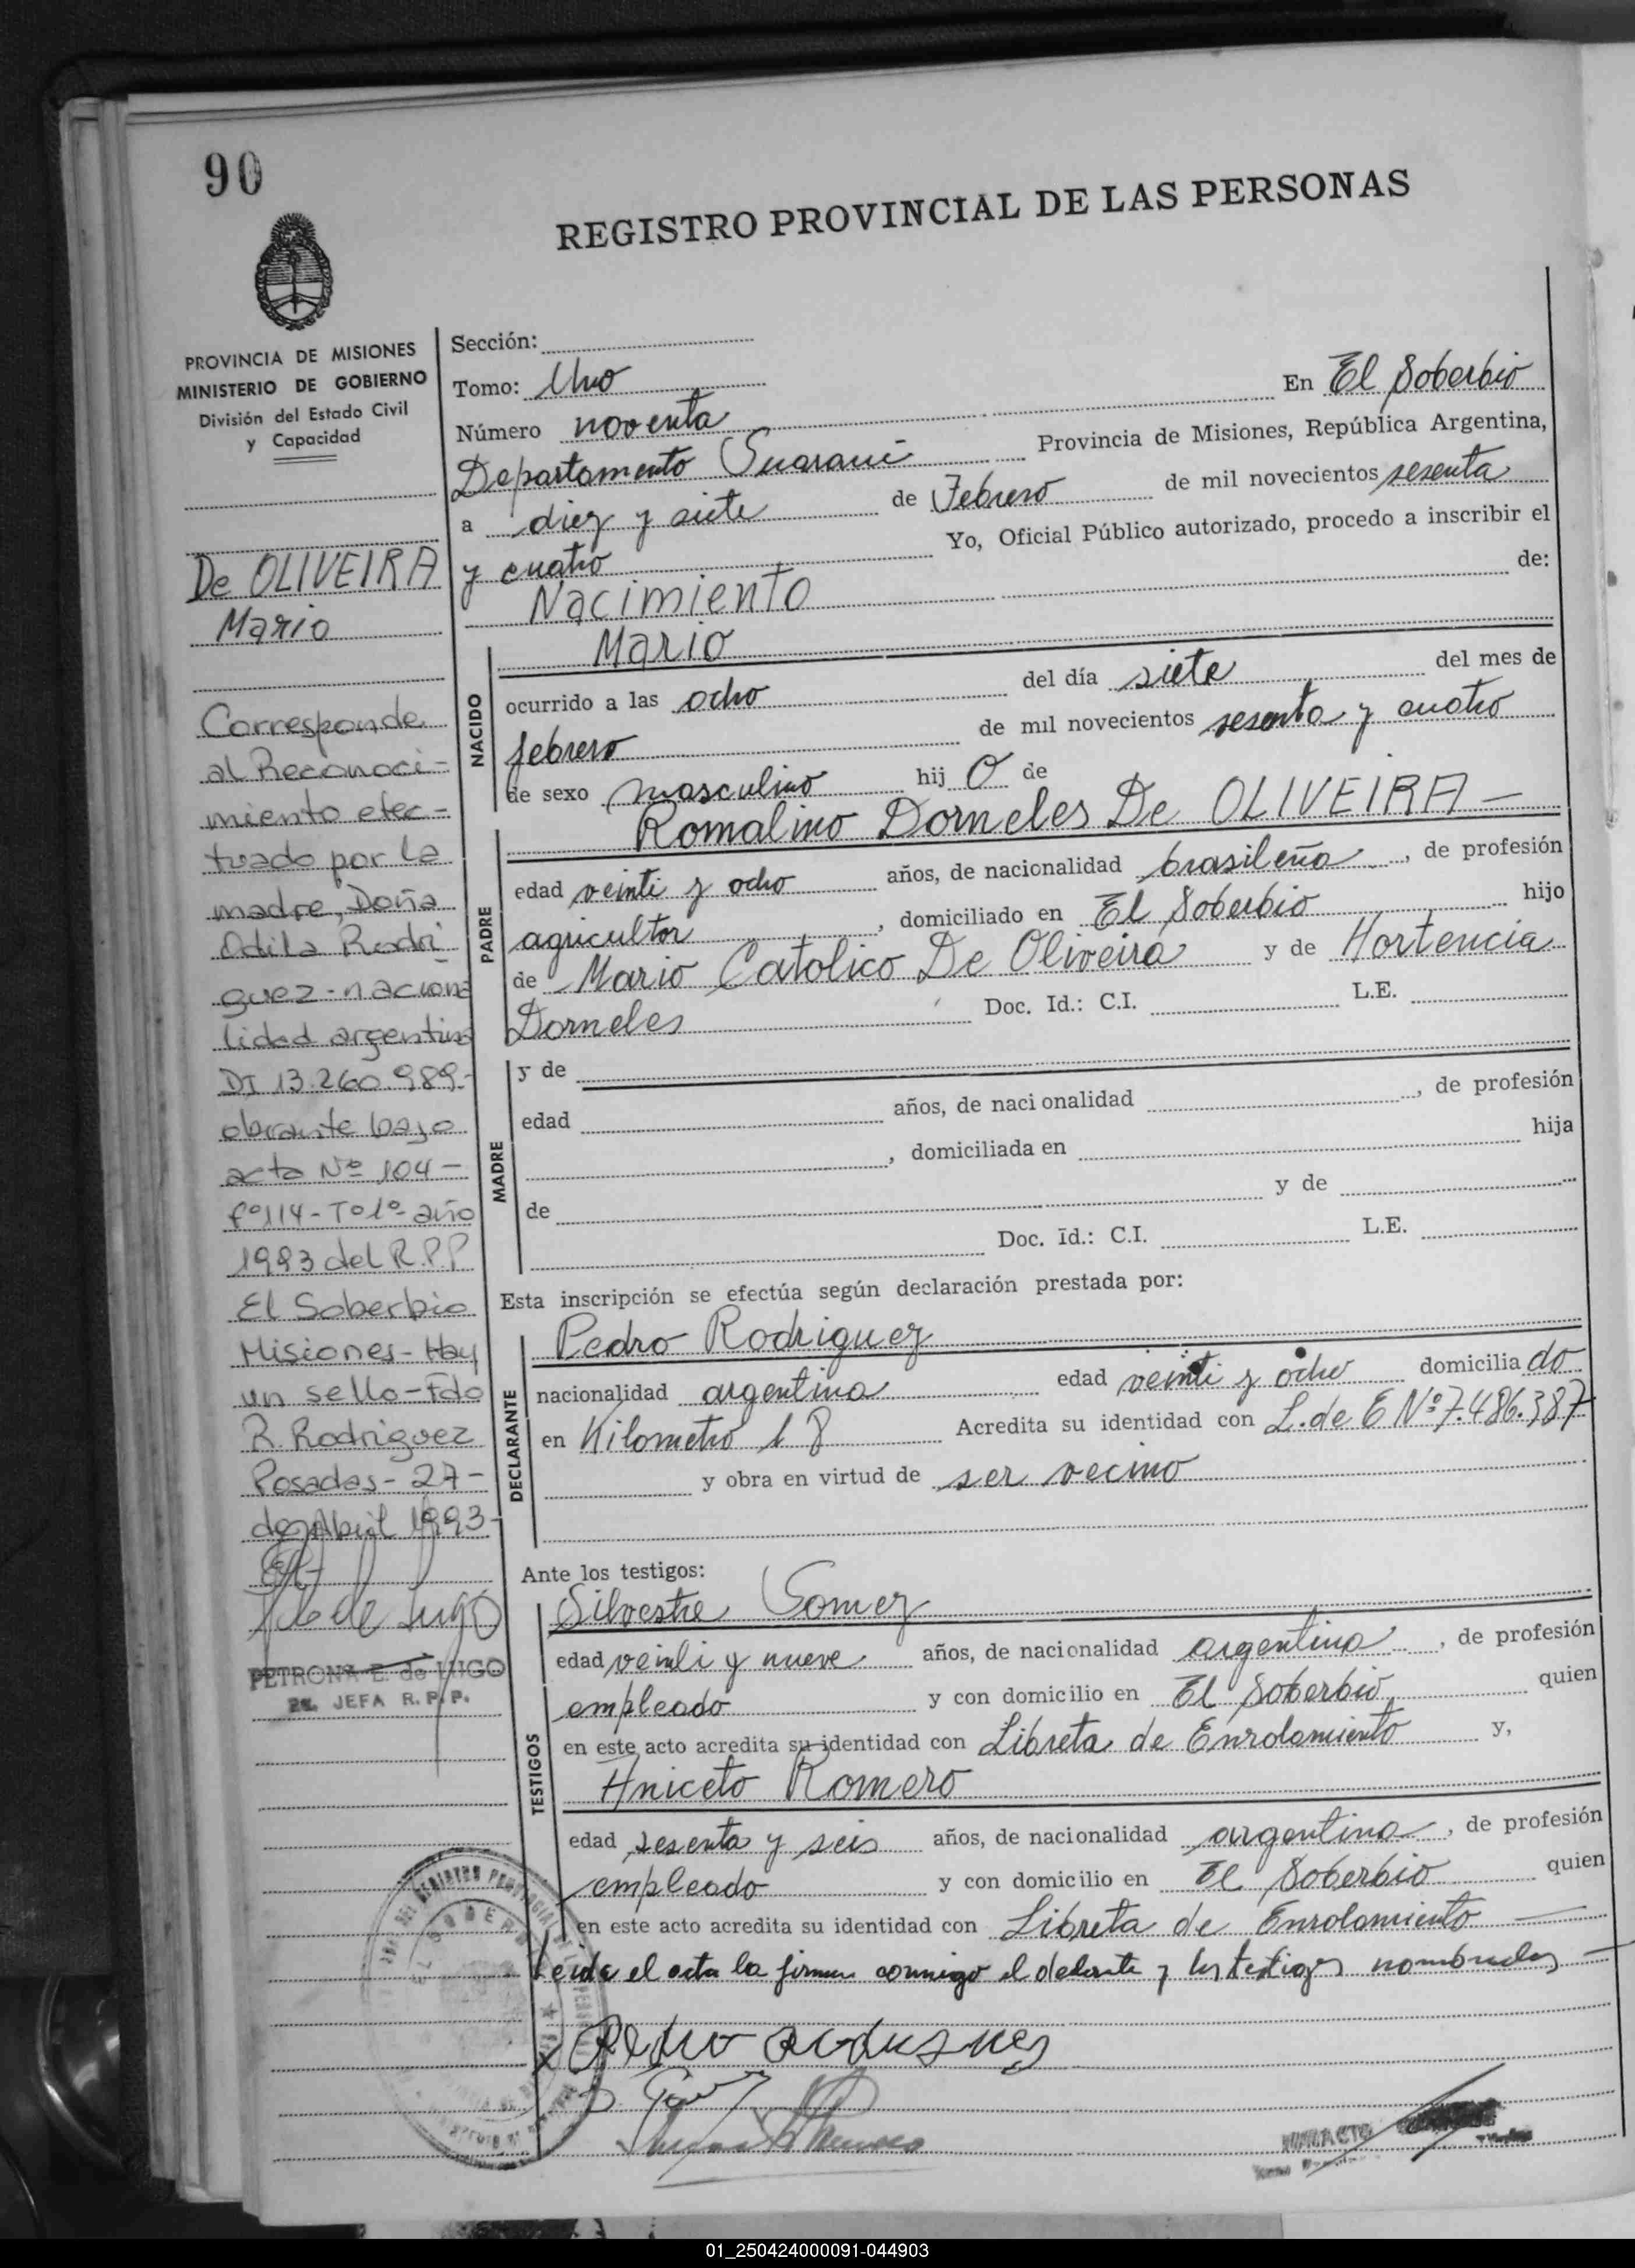 90
REGISTRO PROVINCIAL DE LAS PERSONAS
PROVINCIA DE MISIONES
MINISTERIO DE GOBIERNO
División del Estado Civil
y Capacidad
De OLIVEIRA
Mario
Corresponde
al Reconoci-
miento efec-
tuado por la
madre, Doña
Odila Rodri
guez-naciona
lidad argentina
DI 13.260.989.-
obrante bajo
acta Nº 104-
fº114-Tº1º-año
1983 del R.P.P.
El Soberbio
Misiones-Hay
un sello-Fdo
R. Rodriguez
Posadas-27-
de Abril 1993-
de Lugo
PETRONA E. de LUGO
JEFA R. P. P.
Sección:
Tomo: Uno
Número noventa En El Soberbio
Departamento Guarani Provincia de Misiones, República Argentina,
a diez y siete de Febrero de mil novecientos sesenta
y cuatro Yo, Oficial Público autorizado, procedo a inscribir el
Nacimiento de:
NACIDO
Mario
ocurrido a las ocho del día siete del mes de
febrero de mil novecientos sesenta y cuatro
de sexo masculino hij o de
PADRE
Romalino Dorneles De OLIVEIRA -
edad veinti y ocho años, de nacionalidad brasileña, de profesión
agricultor, domiciliado en El Soberbio hijo
de Mario Catolico De Oliveira y de Hortencia
Dorneles Doc. Id.: C.I. L.E.
MADRE
y de
edad años, de nacionalidad , de profesión
, domiciliada en hija
de y de
Doc. Id.: C.I. L.E.
Esta inscripción se efectúa según declaración prestada por:
DECLARANTE
Pedro Rodriguez
nacionalidad argentina edad veinti y ocho domicilia do
en Kilometro 18 Acredita su identidad con L. de E Nº 7.486.387
y obra en virtud de ser vecino
Ante los testigos:
TESTIGOS
Silvestre Gomez
edad veinti y nueve años, de nacionalidad argentina, de profesión
empleado y con domicilio en El Soberbio quien
en este acto acredita su identidad con Libreta de Enrolamiento y,
Aniceto Romero
edad sesenta y seis años, de nacionalidad argentina, de profesión
empleado y con domicilio en El Soberbio quien
en este acto acredita su identidad con Libreta de Enrolamiento
Leida el acta la firman conmigo el y los testigos nombrados
Pedro Rodriguez
01_250424000091-044903